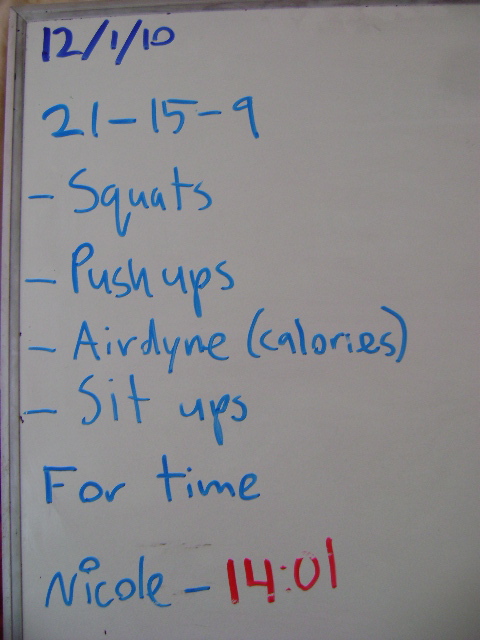 12/1/10
21-15-9
- Squats
- Push ups
- Airdyne (calories)
- Sit ups
For time
Nicole - 14:01